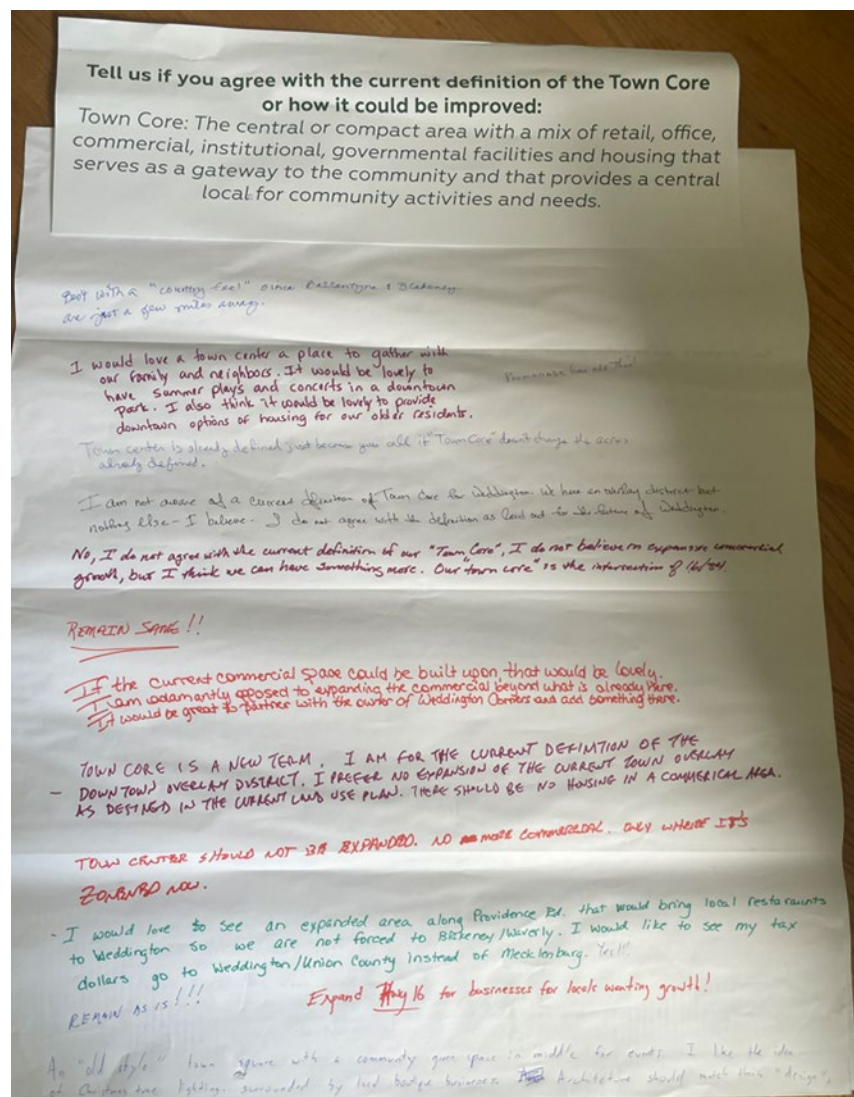 Tell us if you agree with the current definition of the Town Core
or how it could be improved:
Town Core: The central or compact area with a mix of retail, office,
commercial, institutional, governmental facilities and housing that
serves as a gateway to the community and that provides a central
local for community activities and needs.
Best with a "country feel" since Ballantyne & Blakeney
are just a few miles away.
I would love a town center a place to gather with
our family and neighbors. It would be lovely to
have summer plays and concerts in a downtown
park. I also think it would be lovely to provide
downtown options of housing for our older residents.
has all this!
Town center is already defined just because you call it "Town Core" doesn't change the acres
already defined.
I am not aware of a current definition of Town Core for Weddington. We have an overlay district but
nothing else - I believe. I do not agree with the definition as laid out for the future of Weddington.
No, I do not agree with the current definition of our "Town Core", I do not believe in expansive commercial
growth, but I think we can have something more. Our "town core" is the intersection of 16/84.
REMAIN SAME!!
If the current commercial space could be built upon, that would be lovely.
I am adamantly opposed to expanding the commercial beyond what is already here.
It would be great to partner with the owner of Weddington Corners and add something there.
TOWN CORE IS A NEW TERM. I AM FOR THE CURRENT DEFINTION OF THE
- DOWNTOWN OVERLAY DISTRICT. I PREFER NO EXPANSION OF THE CURRENT TOWN OVERLAY
AS DEFINED IN THE CURRENT LAND USE PLAN. THERE SHOULD BE NO HOUSING IN A COMMERICAL AREA.
TOWN CENTER SHOULD NOT BE EXPANDED. NO MORE COMMERCIAL. ONLY WHERE IT'S
NOW.
- I would love to see an expanded area along Providence Rd. that would bring local restaraunts
to Weddington so we are not forced to Blakeney/Waverly. I would like to see my tax
dollars go to Weddington/Union County instead of Mecklenburg. Yes!!
REMAIN AS IS!!!
Expand Hwy 16 for businesses for locals wanting growth!
An "old style" town square with a community green space in middle for events. I like the idea
of Christmas tree lighting. surrounded by local boutique businesses. Architecture should match this "design",